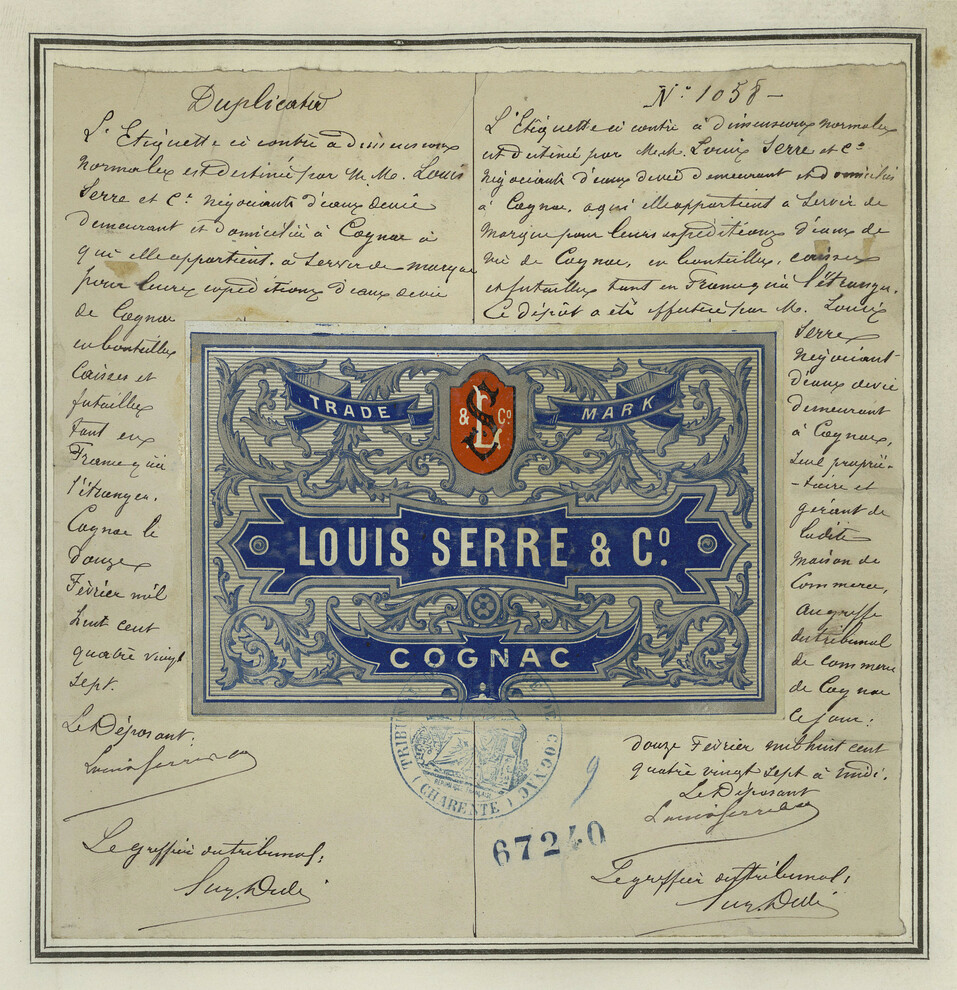 Duplicata
L'Etiquette ci contre à dimensions
normales est destinée par M.M. Louis
Serre et Cie Négociants d'eaux de vie
demeurant et domicilié à Cognac à
qui elle appartient, à servir de marque
pour leurs expéditions d'eaux de vie
de Cognac
en bouteilles
Caisses et
futailles
tant en
France qu'à
l'étranger.
Cognac le
douze
Février mil
huit cent
quatre vingt
sept.
Le Déposant:
Louis Serre & Co
Le greffier du tribunal:
N° 1058 -
L'Etiquette ci contre à dimensions normales
est destinée par M.M. Louis Serre et Cie
Négociants d'eaux de vie demeurant et domiciliés
à Cognac, à qui elle appartient à servir de
marque pour leurs expéditions d'eaux de
vie de Cognac, en bouteilles, caisses
et futailles tant en France qu'à l'étranger.
Ce dépôt a été effectué par M. Louis
Serre
Négociant
d'eaux de vie
demeurant
à Cognac,
seul proprié-
-taire et
gérant de
ladite
maison de
Commerce,
au greffe
du tribunal
de Commerce
de Cognac
ce jour:
douze Février mil huit cent
quatre vingt sept à midi.
Le Déposant
Louis Serre & Co
Le greffier du tribunal:
TRADE MARK
& LS Co
LOUIS SERRE & Co.
COGNAC
TRIBUNAL DE COGNAC
(CHARENTE)
RÉPUBLIQUE FRANÇAISE
9
67240